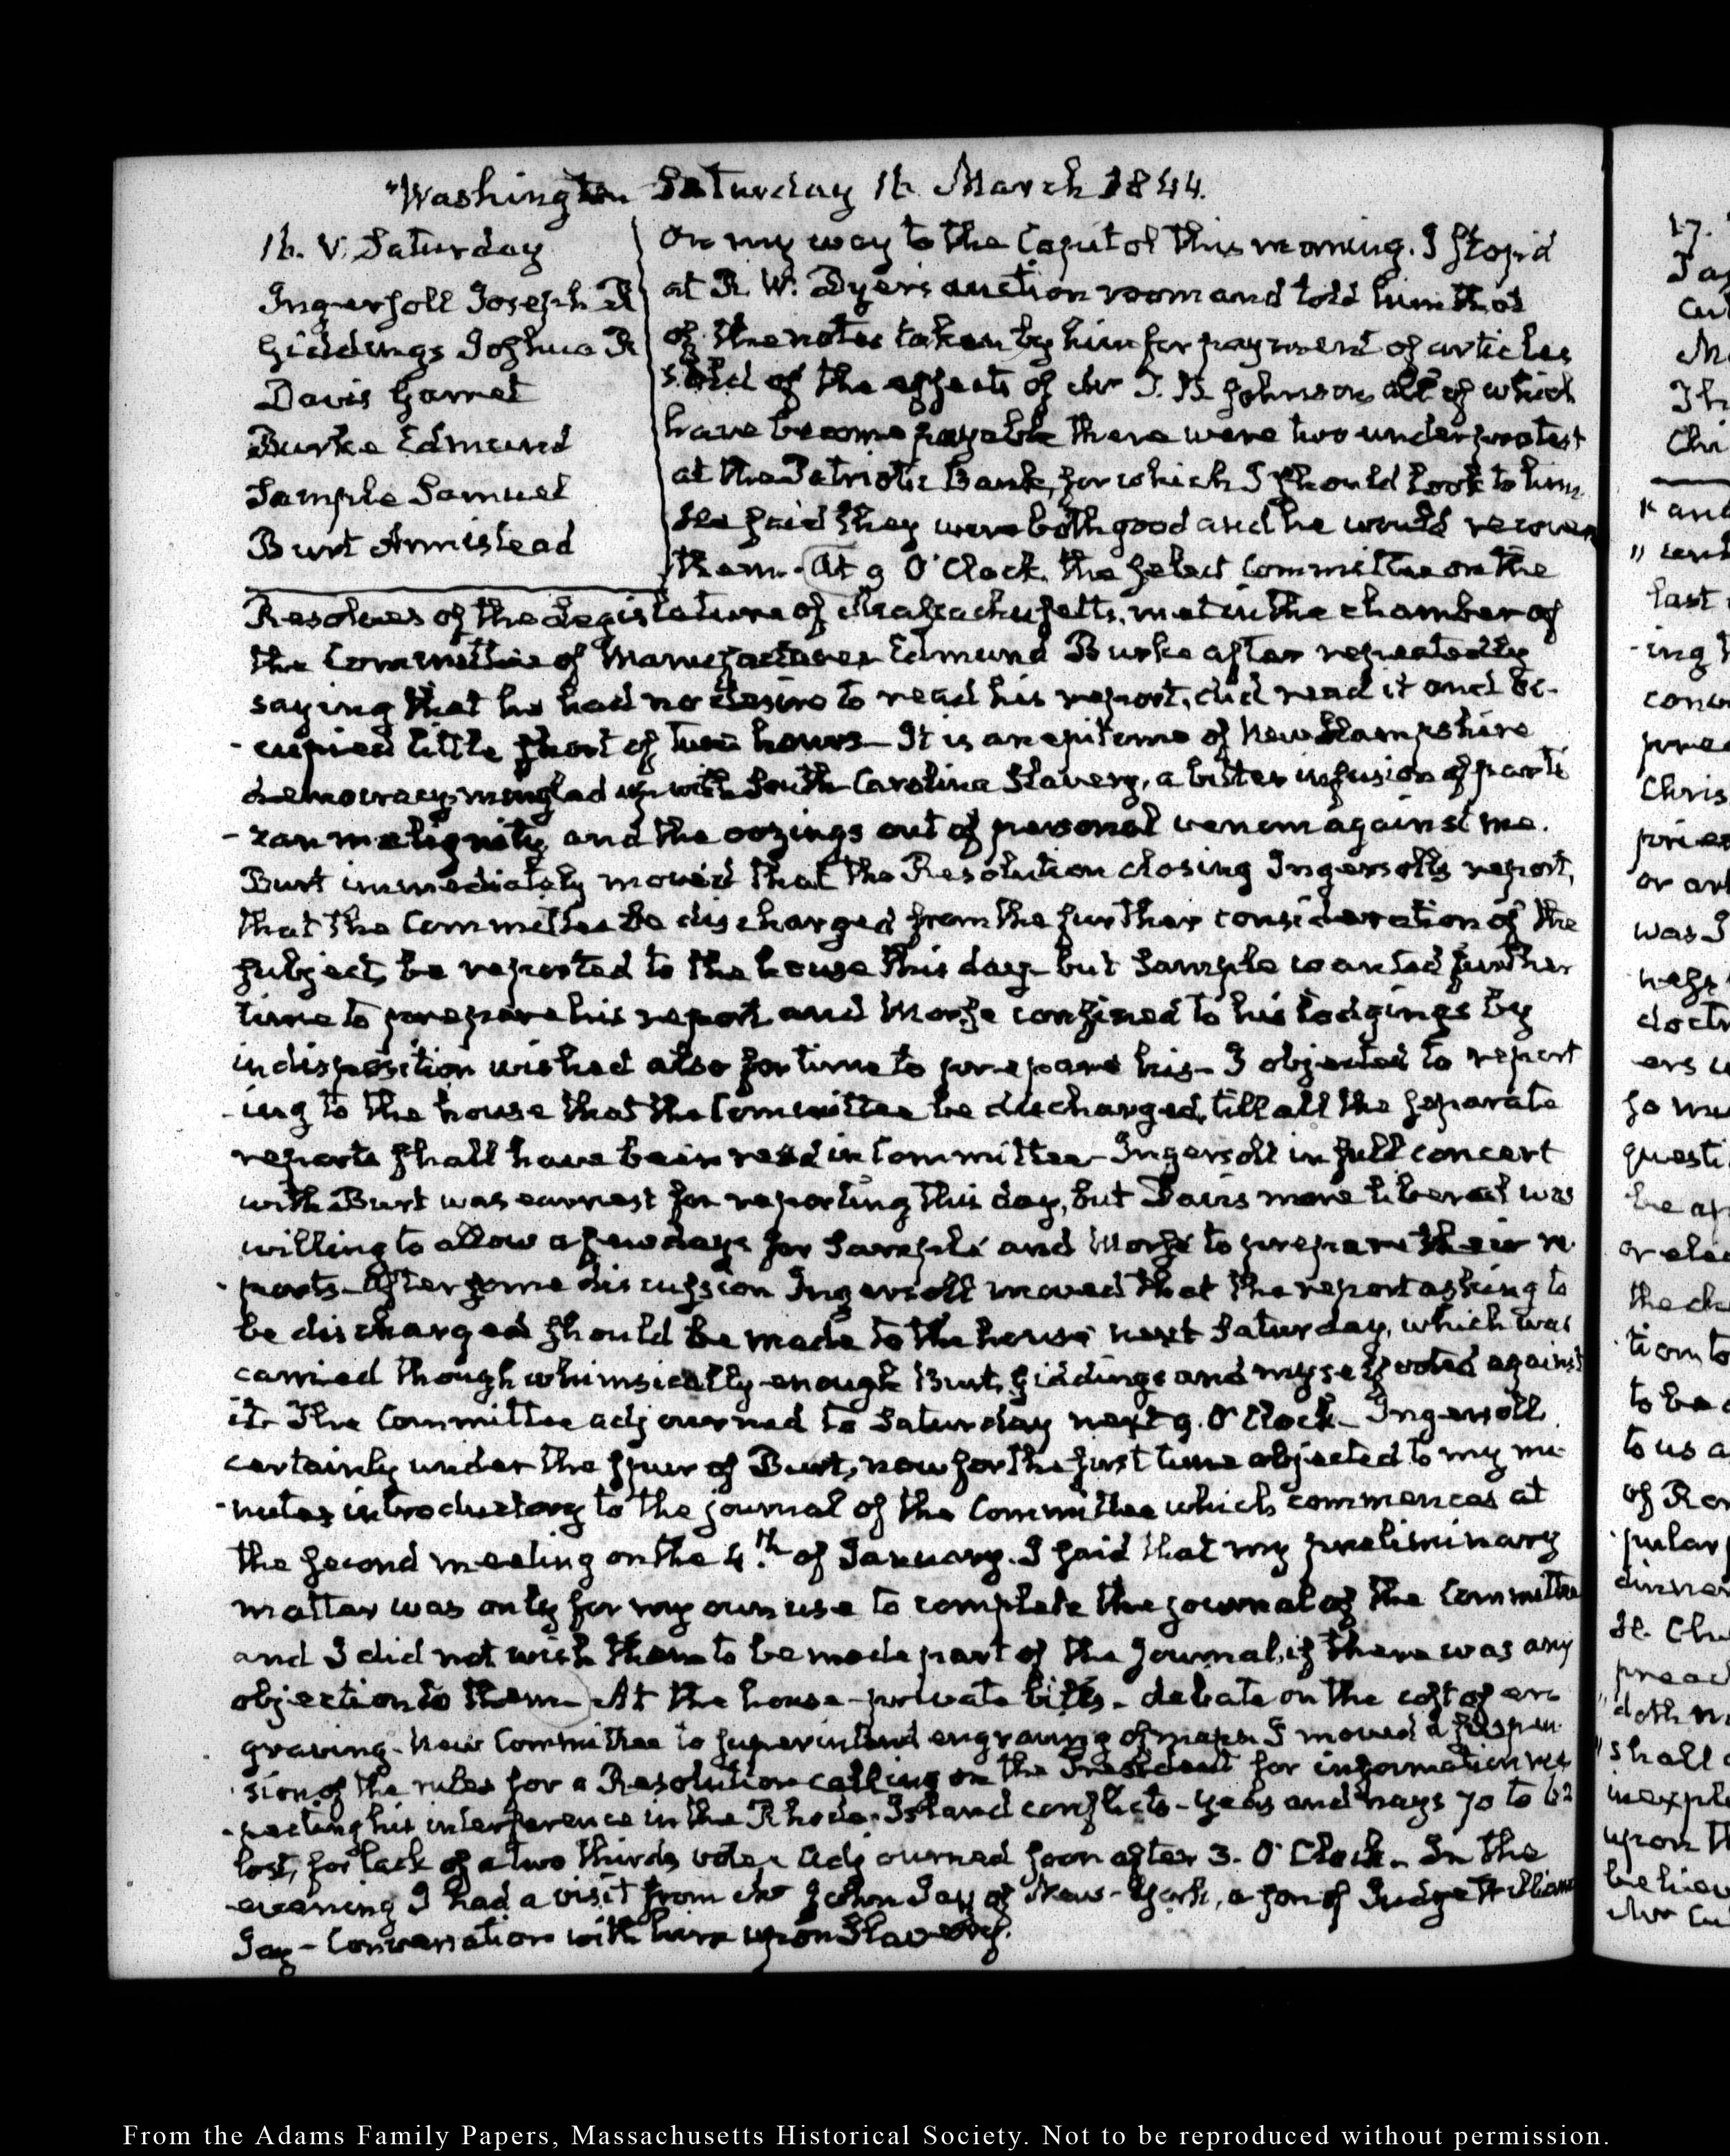 Washington Saturday 16. March 1844.
16. V. Saturday
Ingersoll Joseph R
Giddings Joshua R
Davis Garret
Burke Edmund
Sample Samuel
Burt Armistead
On my way to the Capitol this morning. I stop'd
at R. W. Dyer's auction room and told him that
of the notes taken by him for payment of articles
sold of the effects of Mr T. B. Johnson all of which
have become payable there were two under protest
at the Patriotic Bank, for which I should look to him.
He said they were both good and he would recover
them. At 9 O'Clock. the select Committee on the
Resolves of the Legislature of Massachusetts. met in the chamber of
the Committee of Manufactures Edmund Burke after repeatedly
saying that he had no desire to read his report, did read it and oc-
-cupied little short of two hours— It is an epitome of New Hampshire
democracy mingled up with South Carolina Slavery, a bitter infusion of parti
-zan malignity, and the oozings out of personal venom against me.
Burt immediately moved that the Resolution closing Ingersoll's report,
that the Committee be discharged from the further consideration of the
subject, be reported to the house this day— but Sample wanted further
time to prepare his report and Morse confined to his lodgings by
indisposition wished also for time to prepare his— I objected to report
-ing to the house that the Committee be discharged, till all the separate
reports shall have been read in Committee— Ingersoll in full concert
with Burt was earnest for reporting this day, but Davis more liberal was
willing to allow a few days for Sample and Morse to prepare their re
-ports— After some discussion Ingersoll moved that the report asking to
be discharged should be made to the house next Saturday, which was
carried though whimsically enough Burt, Giddings and myself voted against
it. The Committee adjourned to Saturday next 9. O'Clock— Ingersoll
certainly under the spur of Burt, now for the first time objected to my mi-
-nutes introductory to the journal of the Committee which commences at
the second meeting on the 4.th of January. I said that my preliminary
matter was only for my own use to complete the journal of the Committee
and I did not wish them to be made part of the Journal, if there was any
objection to them— At the house— private bills— debate on the cost of en-
graving— New Committee to superintend engraving of maps. I moved a suspen-
sion of the rules for a Resolution calling on the President for information res
-pecting his interference in the Rhode-Island conflicts— yeas and nays 70 to 62
lost, for lack of a two thirds vote. Adjourned soon after 3. O'Clock. In the
evening I had a visit from Mr John Jay of New-York, a son of Judge William
Jay— Conversation with him upon Slavery.
17.
last
-ing
Chris
was I
questi
to us a
shall
upon
From the Adams Family Papers, Massachusetts Historical Society. Not to be reproduced without permission.